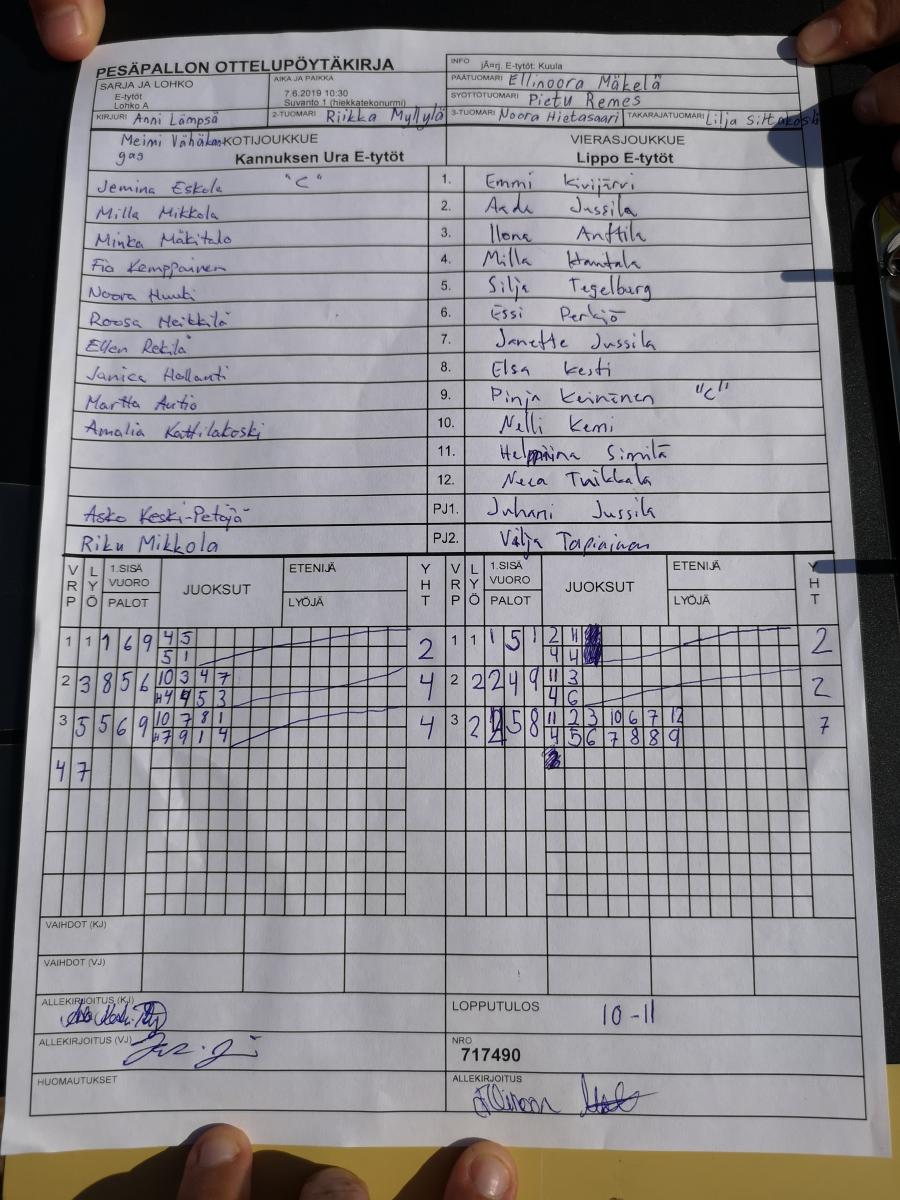 PESÄPALLON OTTELUPÖYTÄKIRJA
INFO jÄ¤rj. E-tytöt: Kuula
SARJA JA LOHKO
E-tytöt
Lohko A
AIKA JA PAIKKA
7.6.2019 10:30
Suvanto 1 (hiekkatekonurmi)
PÄÄTUOMARI Ellinoora Mäkelä
SYÖTTÖTUOMARI Pietu Remes
KIRJURI Anni Lämpsä
2-TUOMARI Riikka Myllylä
3-TUOMARI Noora Hietasaari
TAKARAJATUOMARI Lilja Siltakoski
KOTIJOUKKUE
Kannuksen Ura E-tytöt
VIERASJOUKKUE
Lippo E-tytöt
Jemina Eskola "C" 1. Emmi Kivijärvi
Milla Mikkola 2. Aada Jussila
Minka Mäkitalo 3. Ilona Anttila
Fia Kemppainen 4. Milla Hautala
Noora Huuki 5. Silja Tegelburg
Roosa Heikkilä 6. Essi Perkiö
Ellen Rekilä 7. Janette Jussila
Janica Hollanti 8. Elsa Kesti
Martta Autio 9. Pinja Keinänen "C"
Amalia Kattilakoski 10. Nelli Kemi
11. Similä
12. Neea Tuikkala
Asko Keski-Petäjä PJ1. Juhani Jussila
Riku Mikkola PJ2. Vilja Tapiainen
VRP LYÖ 1.SISÄ VUORO PALOT JUOKSUT ETENIJÄ LYÖJÄ YHT VRP LYÖ 1.SISÄ VUORO PALOT JUOKSUT ETENIJÄ LYÖJÄ YHT
1 1 1 6 9 4 5 2 1 1 1 5 1 2 11 2
5 1 4 4
2 3 8 5 6 10 3 4 7 4 2 2 2 4 9 11 3 2
4 5 3 4 6
3 5 5 6 9 10 7 8 1 4 3 2 5 8 11 2 3 10 6 7 12 7
7 9 1 4 4 5 6 7 8 8 9
4 7
VAIHDOT (KJ)
VAIHDOT (VJ)
ALLEKIRJOITUS (KJ)
LOPPUTULOS 10-11
ALLEKIRJOITUS (VJ)
NRO
717490
HUOMAUTUKSET
ALLEKIRJOITUS